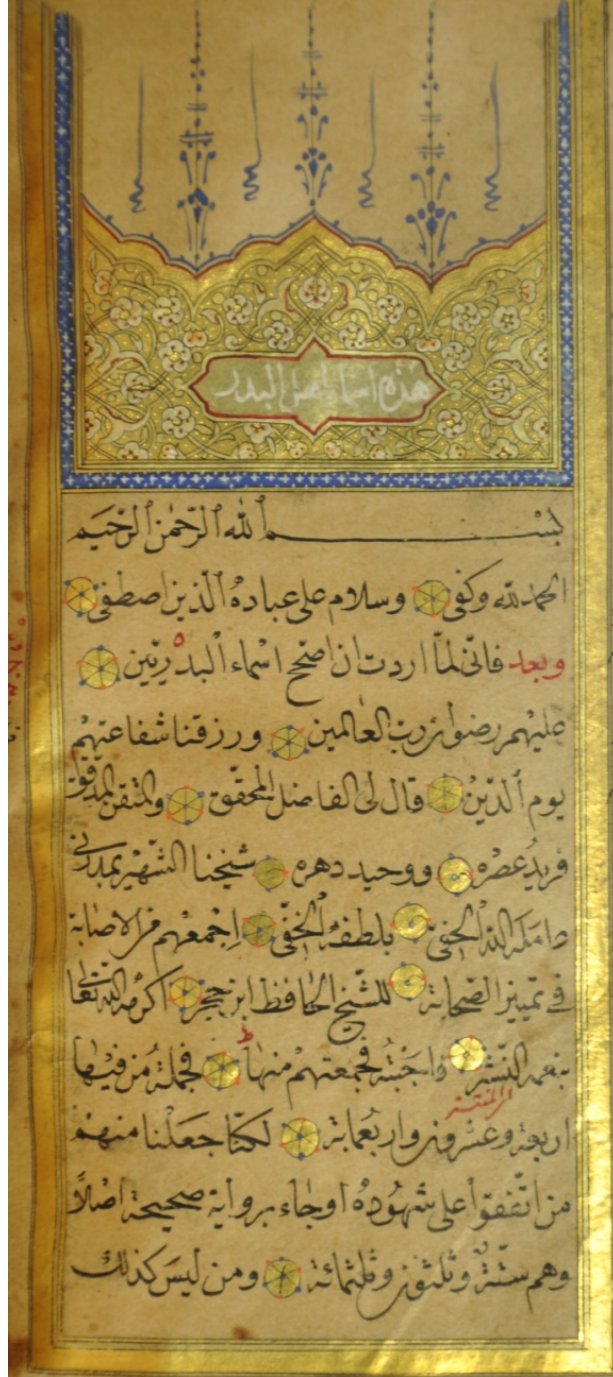 هذه اسماء اهل البدر
بسم الله الرحمن الرحيم
الحمد لله وكفى وسلام على عباده الذين اصطفى
وبعد فانى لما اردت ان اصحح اسماء البدريين
عليهم رضوان رب العالمين ورزقنا شفاعتهم
يوم الدين قال لى الفاضل المحقق والمتقن المدقق
فريد عصره ووحيد دهره شيخنا الشهير بمدنى
عامله الله الحفى بلطفه الخفى اجمعهم من الاصابة
فى تمييز الصحابة للشيخ الحافظ ابن حجر اكرمه الله تعالى
فاجبته فجمعتهم منها فجملة من فيها
اربعة وعشرون واربعمائة لكنا جعلنا منهم
من اتفقوا على شهوده او جاء برواية صحيحة اصلاً
وهم ستة وثلثون وثلثمائة ومن ليس كذلك